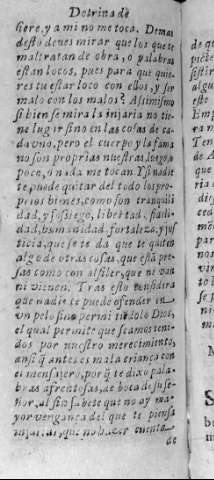 Dotrina de
fiere, y a mi no me toca. Demas
desto deues mirar que los que te
maltratan de obra, o palabras
estan locos, pues para que quie-
res tu estar loco con ellos, y ser
malo con los malos? Assimismo
si bien se mira la injuria no tie-
ne lugar sino en las cosas de ca-
da vno, pero el cuerpo y la fama
no son proprias nuestras, luego
poco, o nada me tocan. Y si nadie
te puede quitar del todo los pro-
prios bienes, como son tranquili
dad, y sossiego, libertad,
dad, humanidad, fortaleza, y jus
ticia, que se te da que te quiten
algo de otras cosas, que está pre-
sas como con alfiler, que ni van
ni vienen. Tras esto considera
que nadie te puede ofender en
vn pelo sino permitiédolo Dios,
el qual permite que seamos teni-
dos por nuestro merecimiento,
ansi q̃ antes es mala criança con
el mensajero, por q̃ te dixo pala-
bras afrentosas, de boca de su se-
ñor, al fin sabete que no ay ma-
yor vengança del que te piensa
injuriar, que no hazer cuenta
de